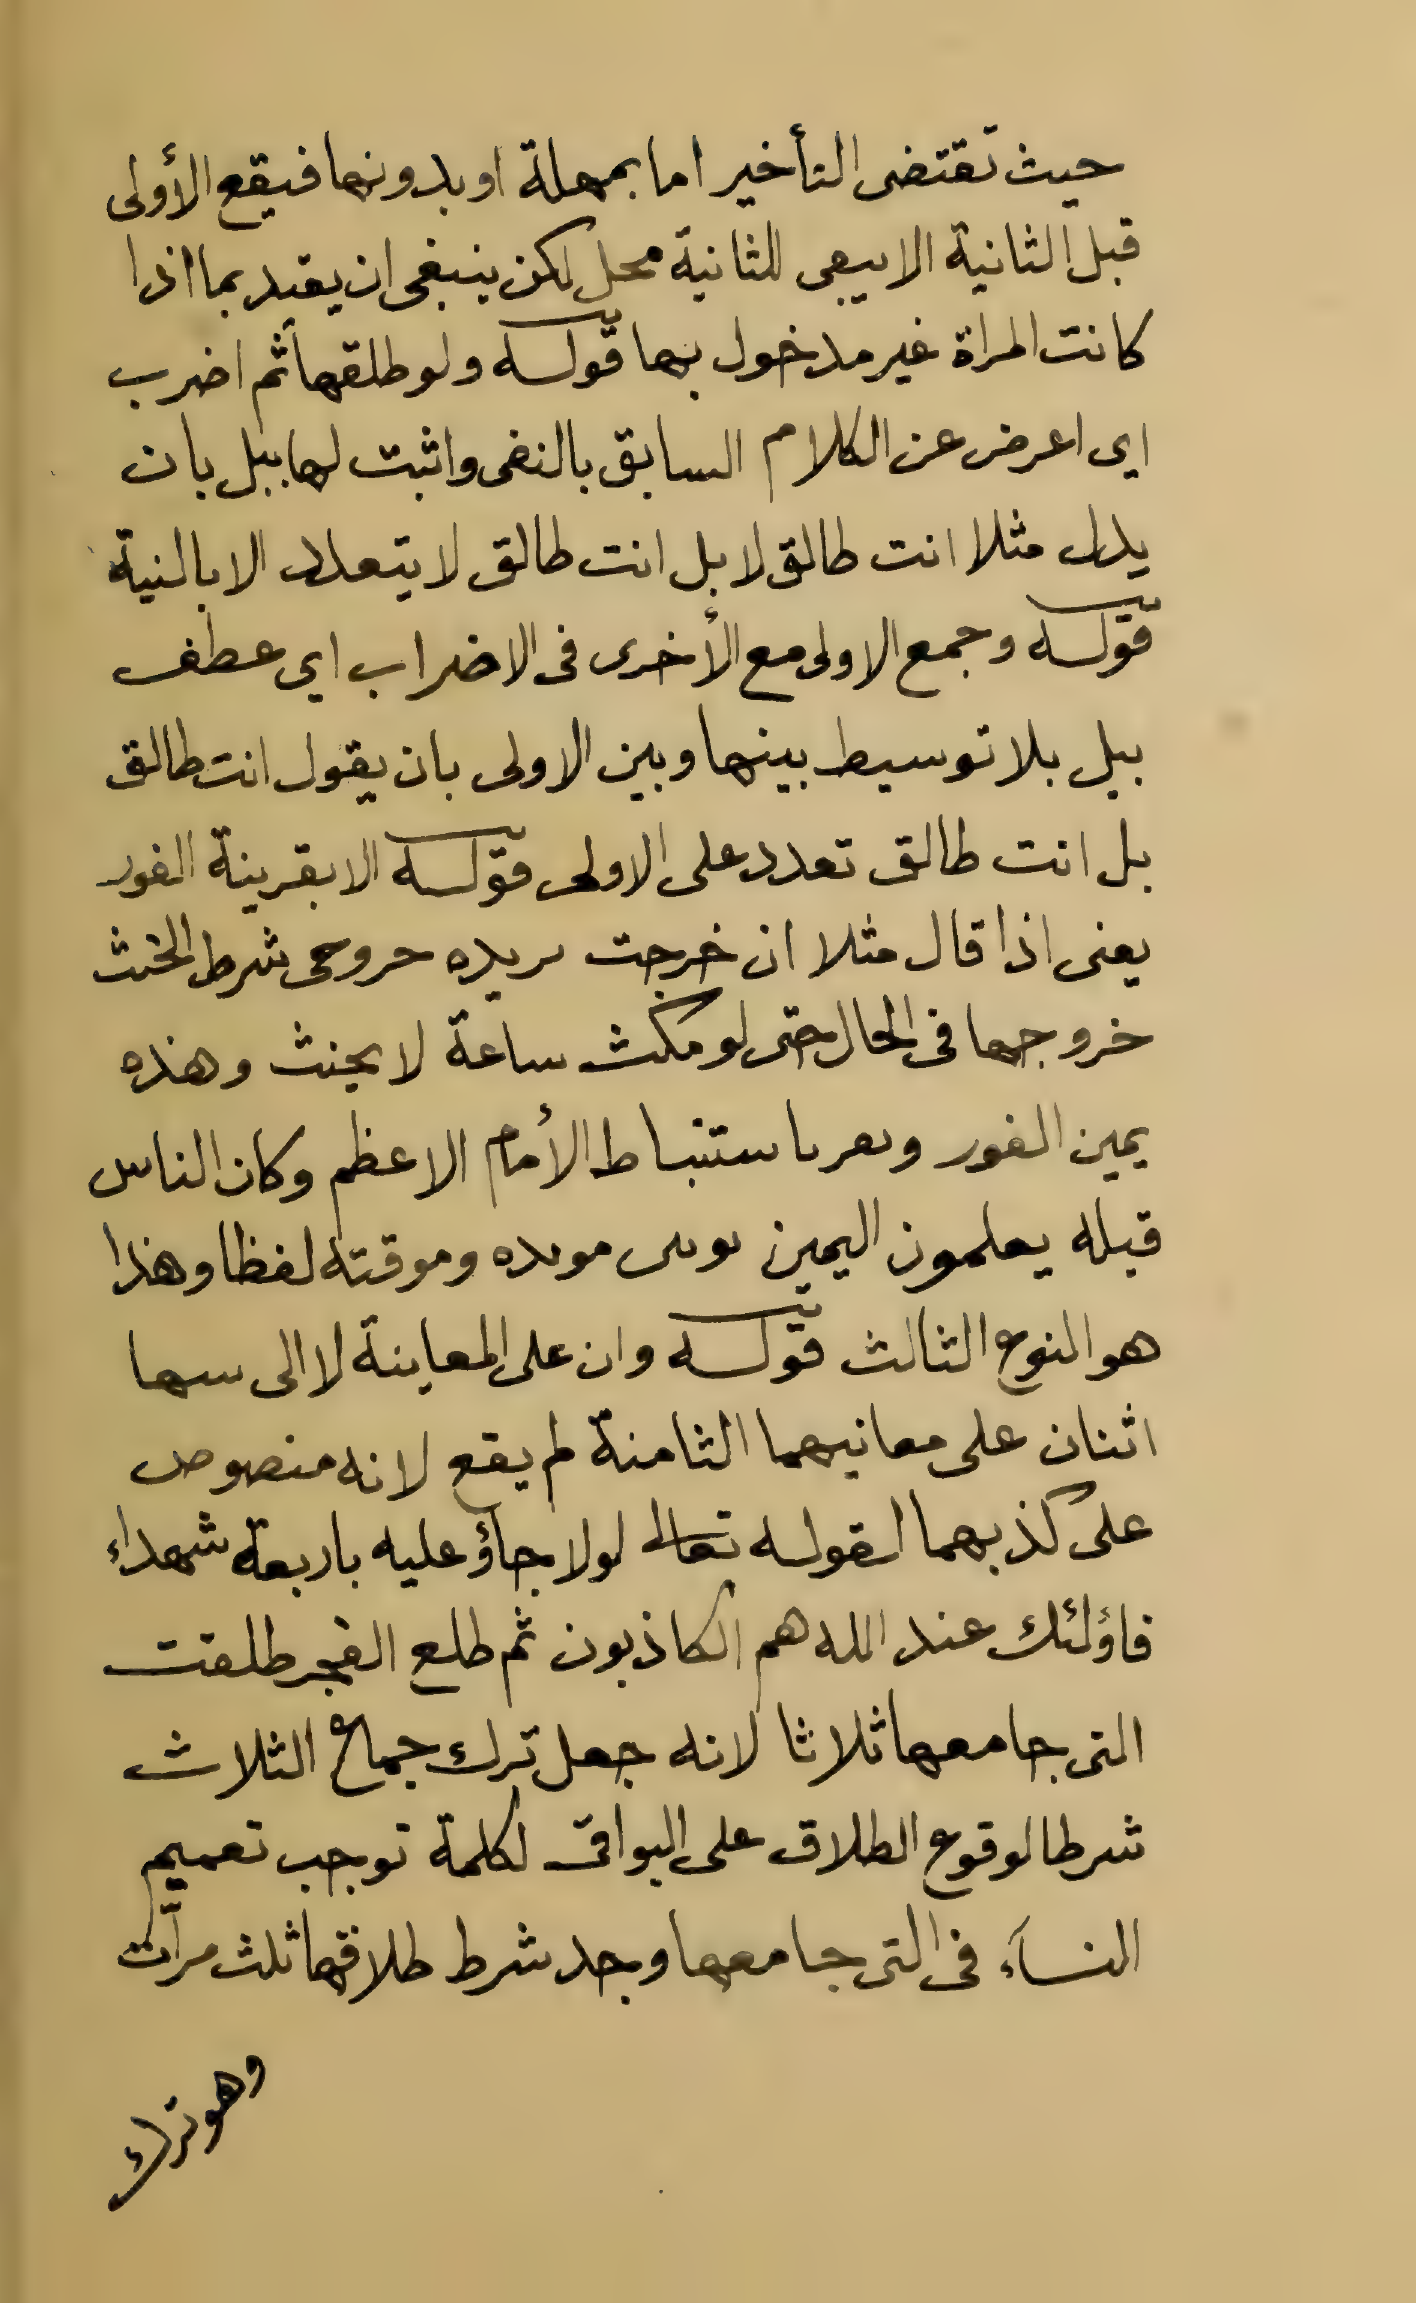 حيث تقتضى التأخير اما بمهلة او بدونها فيقع الأولى
قبل الثانية الا يبقى للثانية محل لكن ينبغى ان يقيد بما اذا
كانت المراة غير مدخول بها قوله ولو طلقها ثم اضرب
اى اعرض عن الكلام السابق بالنفى واثبت لها ببل بان
يدل مثلا انت طالق لا بل انت طالق لا يتعدد الا بالنية
قوله وجمع الاولى مع الأخرى فى الاضراب اى عطف
ببل بلا توسيط بينها وبين الاولى بان يقول انت طالق
بل انت طالق تعدد على الاولى قوله الا بقرينة الفور
يعنى اذا قال مثلا ان خرجت مريده خروجى شرط الحنث
خروجها فى الحال حتى لو مكث ساعة لا يحنث وهذه
يمين الفور باستنباط الأمام الاعظم وكان الناس
قبله يعلمون اليمين موبده وموقتة لفظا وهذا
هو النوع الثالث قوله وان على المعاينة لا الى سها
اثنان على معانيهما الثامنة لم يقع لانه منصوص
على كذبهما لقوله تعالى لولا جاؤ عليه باربعة شهداء
فاؤلئك عند الله هم الكاذبون ثم طلع الفجر طلقت
التى جامعها ثلاثا لانه جعل ترك جماع الثلاث
شرطا لوقوع الطلاق على البواقى لكلمة توجب تعميم
النسآء فى التى جامعها وجد شرط طلاقها ثلث مرآت
وهو ترك